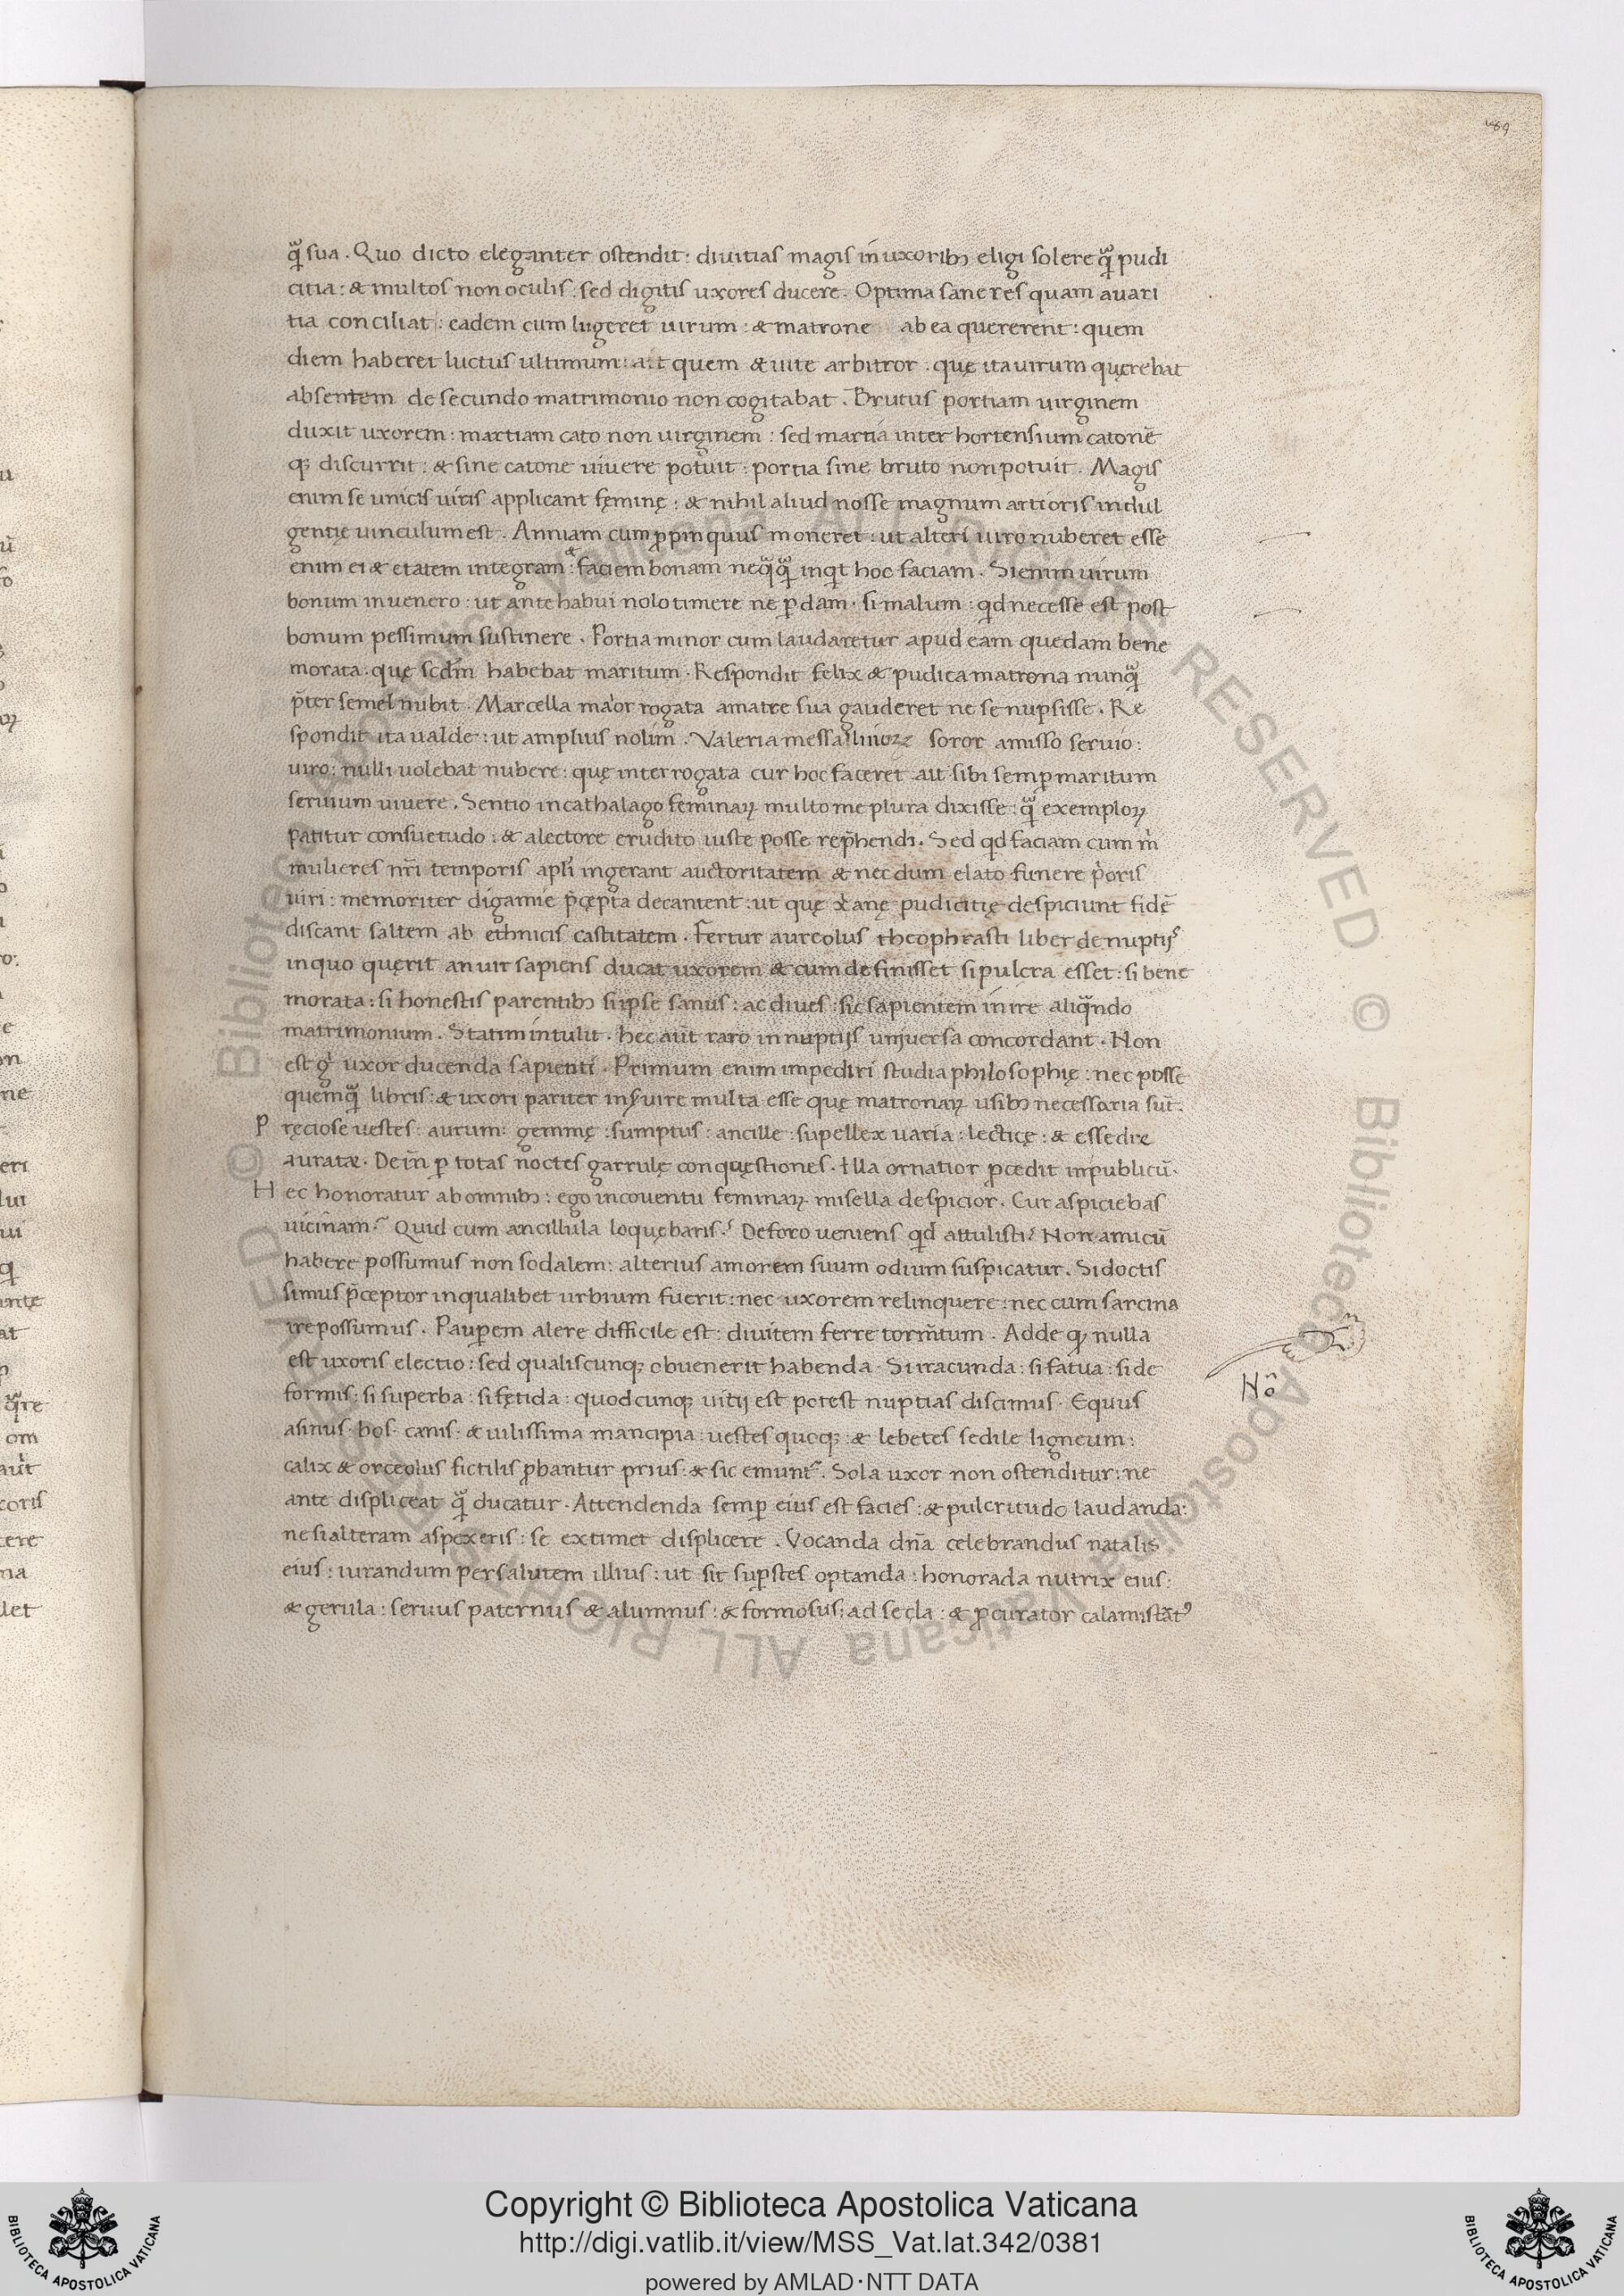 189
qͣ̃ sua . Quo dicto eleganter ostendit : divitias magis in uxoribꝫ eligi solere qͣ̃ pudi
citia : & multos non oculis : sed digitis uxores ducere . Optima sane res quam auari
tia conciliat : eadem cum lugeret uirum : & matrone ab ea quererent : quem
diem haberet luctus ultimum : ait quem & uite arbitror . quę ita uirum quęrebat
absentem de secundo matrimonio non cogitabat . Brutus portiam uirginem
duxit uxorem : martiam cato non uirginem : sed martia inter hortensium catonē
qꝫ discurrit : & sine catone uiuere potuit : portia sine bruto non potuit . Magis
enim se unicis uiris applicant fęminę : & nihil aliud nosse magnum artioris indul
gentię uinculum est . Anniam cum ꝓpinquus moneret : ut alteri uiro nuberet esse
enim ei & etatem integram : & faciem bonam neqͣ̃qͣ̃ inqͥt hoc faciam . Si enim uirum
bonum inuenero : ut ante habui nolo timere ne ꝑdam . si malum : qͥd necesse est post
bonum pessimum sustinere . Portia minor cum laudaretur apud eam quedam bene
morata . quę scdm̄ habebat maritum . Respondit felix & pudica matrona nunqͣ̃
p̄ter semel nubit . Marcella maior rogata a matre sua gauderet ne se nupsisse . Re
spondit ita ualde : ut amplius nolim . Valeria messallinoꝝ soror amisso seruio :
uiro : nulli uolebat nubere : quę interrogata cur hoc faceret ait sibi semꝑ maritum
seruium uiuere . Sentio in cathalago feminaꝝ multo me plura dixisse : qͣ̃ exemploꝝ
patitur consuetudo : & alectore erudito iuste posse rep̄hendi . Sed qͥd faciam cum m̍
mulieres nr̄i temporis apl̍i ingerant auctoritatem & nec dum elato funere pͥoris
uiri : memoriter digamie p̄cępta decantent : ut quę xͥanę pudicitię despiciunt fidē
discant saltem ab ethnicis castitatem . Fertur aureolus theophrasti liber de nuptijs
in quo quęrit an uir sapiens ducat uxorem & cum definisset si pulcra esset : si bene
morata : si honestis parentibꝫ si ipse sanus : ac diues : sic sapientem inire aliqͣ̃ndo
matrimonium . Statim intulit . hec aūt raro in nuptijs uniuersa concordant . Non
est gͥ uxor ducenda sapienti . Primum enim impediri studia philosophię : nec posse
quemqͣ̃ libris : & uxori pariter inseruire multa esse quę matronaꝝ usibꝫ necessaria sūt .
P ręciose uestes : aurum : gemmę : sumptus : ancille : supellex uaria : lecticę : & essedre
auratæ . Dein̄ ꝑ totas noctes garrulę conquęstiones . Illa ornatior ꝓcedit in publicū .
H ec honoratur ab omnibꝫ : ego in couentu feminaꝝ misella despicior . Cur aspiciebas
uicinam ? Quid cum ancillula loquębaris ? De foro ueniens qͥd attulisti ? Non amicū
habere possumus non sodalem : alterius amorem suum odium suspicatur . Si doctis
simus p̄ceptor in qualibet urbium fuerit : nec uxorem relinquere : nec cum sarcina
ire possumus . Pauꝑem alere difficile est : diuitem ferre torm̄tum . Adde qꝫ nulla
est uxoris electio : sed qualiscunqꝫ obuenerit habenda . Si iracunda : si fatua : si de
formis : si superba : si fętida : quodcunqꝫ uitij est potest nuptias discimus . Equus
asinus . bos . canis : & uilissima mancipia : uestes quoqꝫ : & lebetes sedile ligneum :
calix & orceolus fictilis ꝓbantur prius : & sic emunt̃ . Sola uxor non ostenditur : ne
ante displiceat qͣ̃ ducatur . Attendenda semꝑ eius est facies : & pulcritudo laudanda :
ne si alteram aspexeris : se extimet displicere . Vocanda dn̄a celebrandus natalis
eius : iurandum per salutem illius : ut sit suꝑstes optanda : honorada nutrix eius :
& gerula : seruus paternus & alumnus : & formosus : ad secla : & ꝓcurator calamistrat᷒
Nõ
Copyright © Biblioteca Apostolica Vaticana
http://digi.vatlib.it/view/MSS_Vat.lat.342/0381
powered by AMLAD·NTT DATA
BIBLIOTECA APOSTOLICA VATICANA
BIBLIOTECA APOSTOLICA VATICANA
© Biblioteca Apostolica Vaticana ALL RIGHTS RESERVED
© Biblioteca Apostolica Vaticana ALL RIGHTS RESERVED